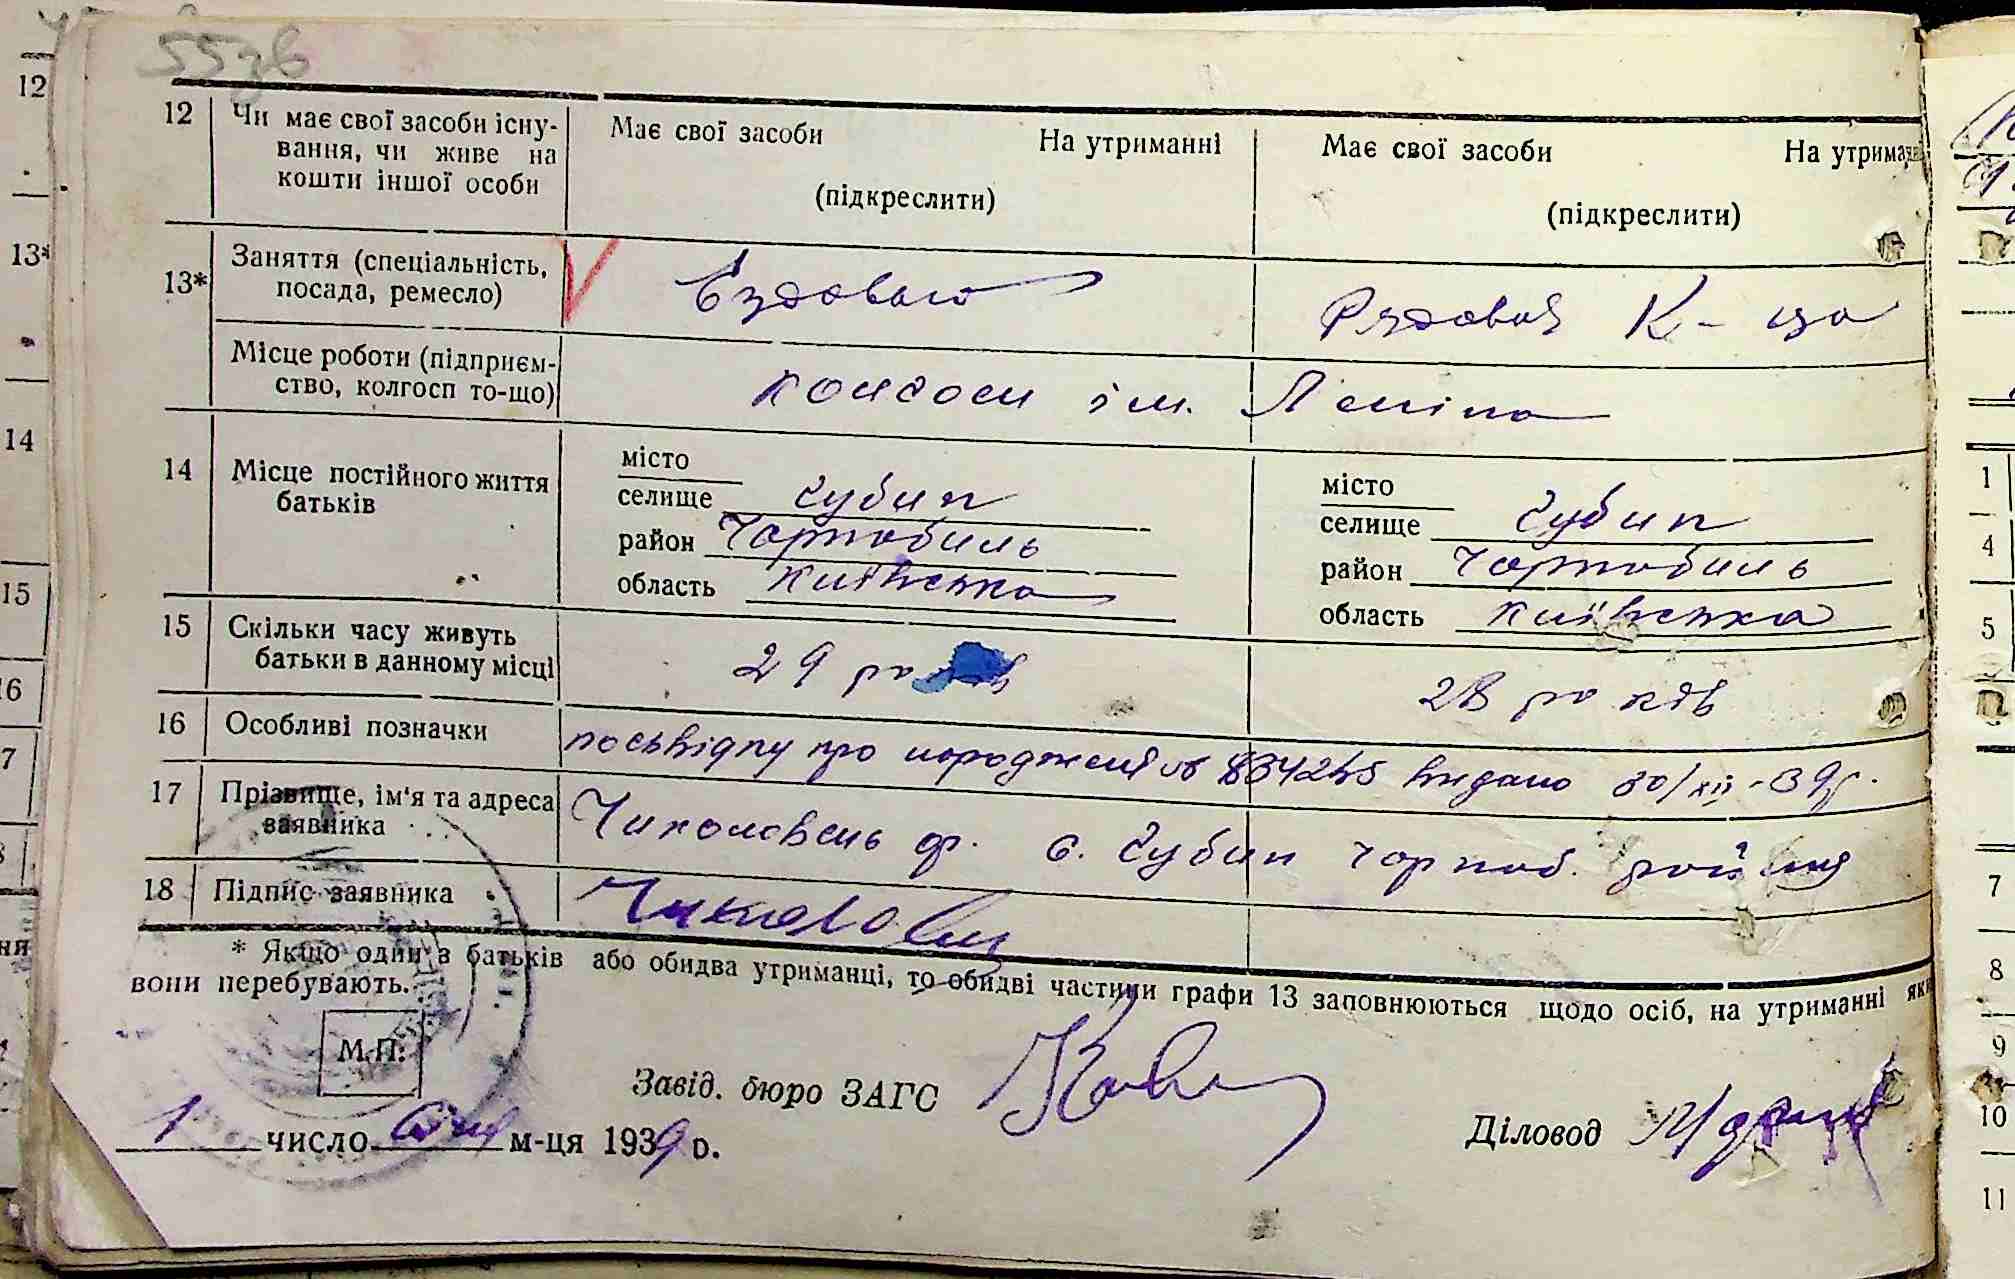 12 Чи має свої засоби існу-
вання, чи живе на
кошти іншої особи
Має свої засоби На утриманні
(підкреслити)
Має свої засоби На утриман
(підкреслити)
13* Заняття (спеціальність,
посада, ремесло)
Ездовий
Рядовой К-ца
Місце роботи (підприєм-
ство, колгосп то-що)
колгосп ім. Леніна
14 Місце постійного життя
батьків
місто
селище Губин
район Чорнобиль
область Київська
місто
селище Губин
район Чорнобиль
область Київська
15 Скільки часу живуть
батьки в данному місці
29 років
28 років
16 Особливі позначки
посьвідку про народженя № 834245 видано 30/XII-39р.
17 Прізвище, ім'я та адреса
заявника
Чиколовець ф. с. Губин Чорноб. район
18 Підпис заявника
* Якщо один з батьків або обидва утриманці, то обидві частини графи 13 заповнюються щодо осіб, на утриманні яки
вони перебувають.
М.П.
Завід. бюро ЗАГС
Діловод
1 число м-ця 1939 р.
12
13*
14
15
16
7
1
4
5
7
8
9
10
11